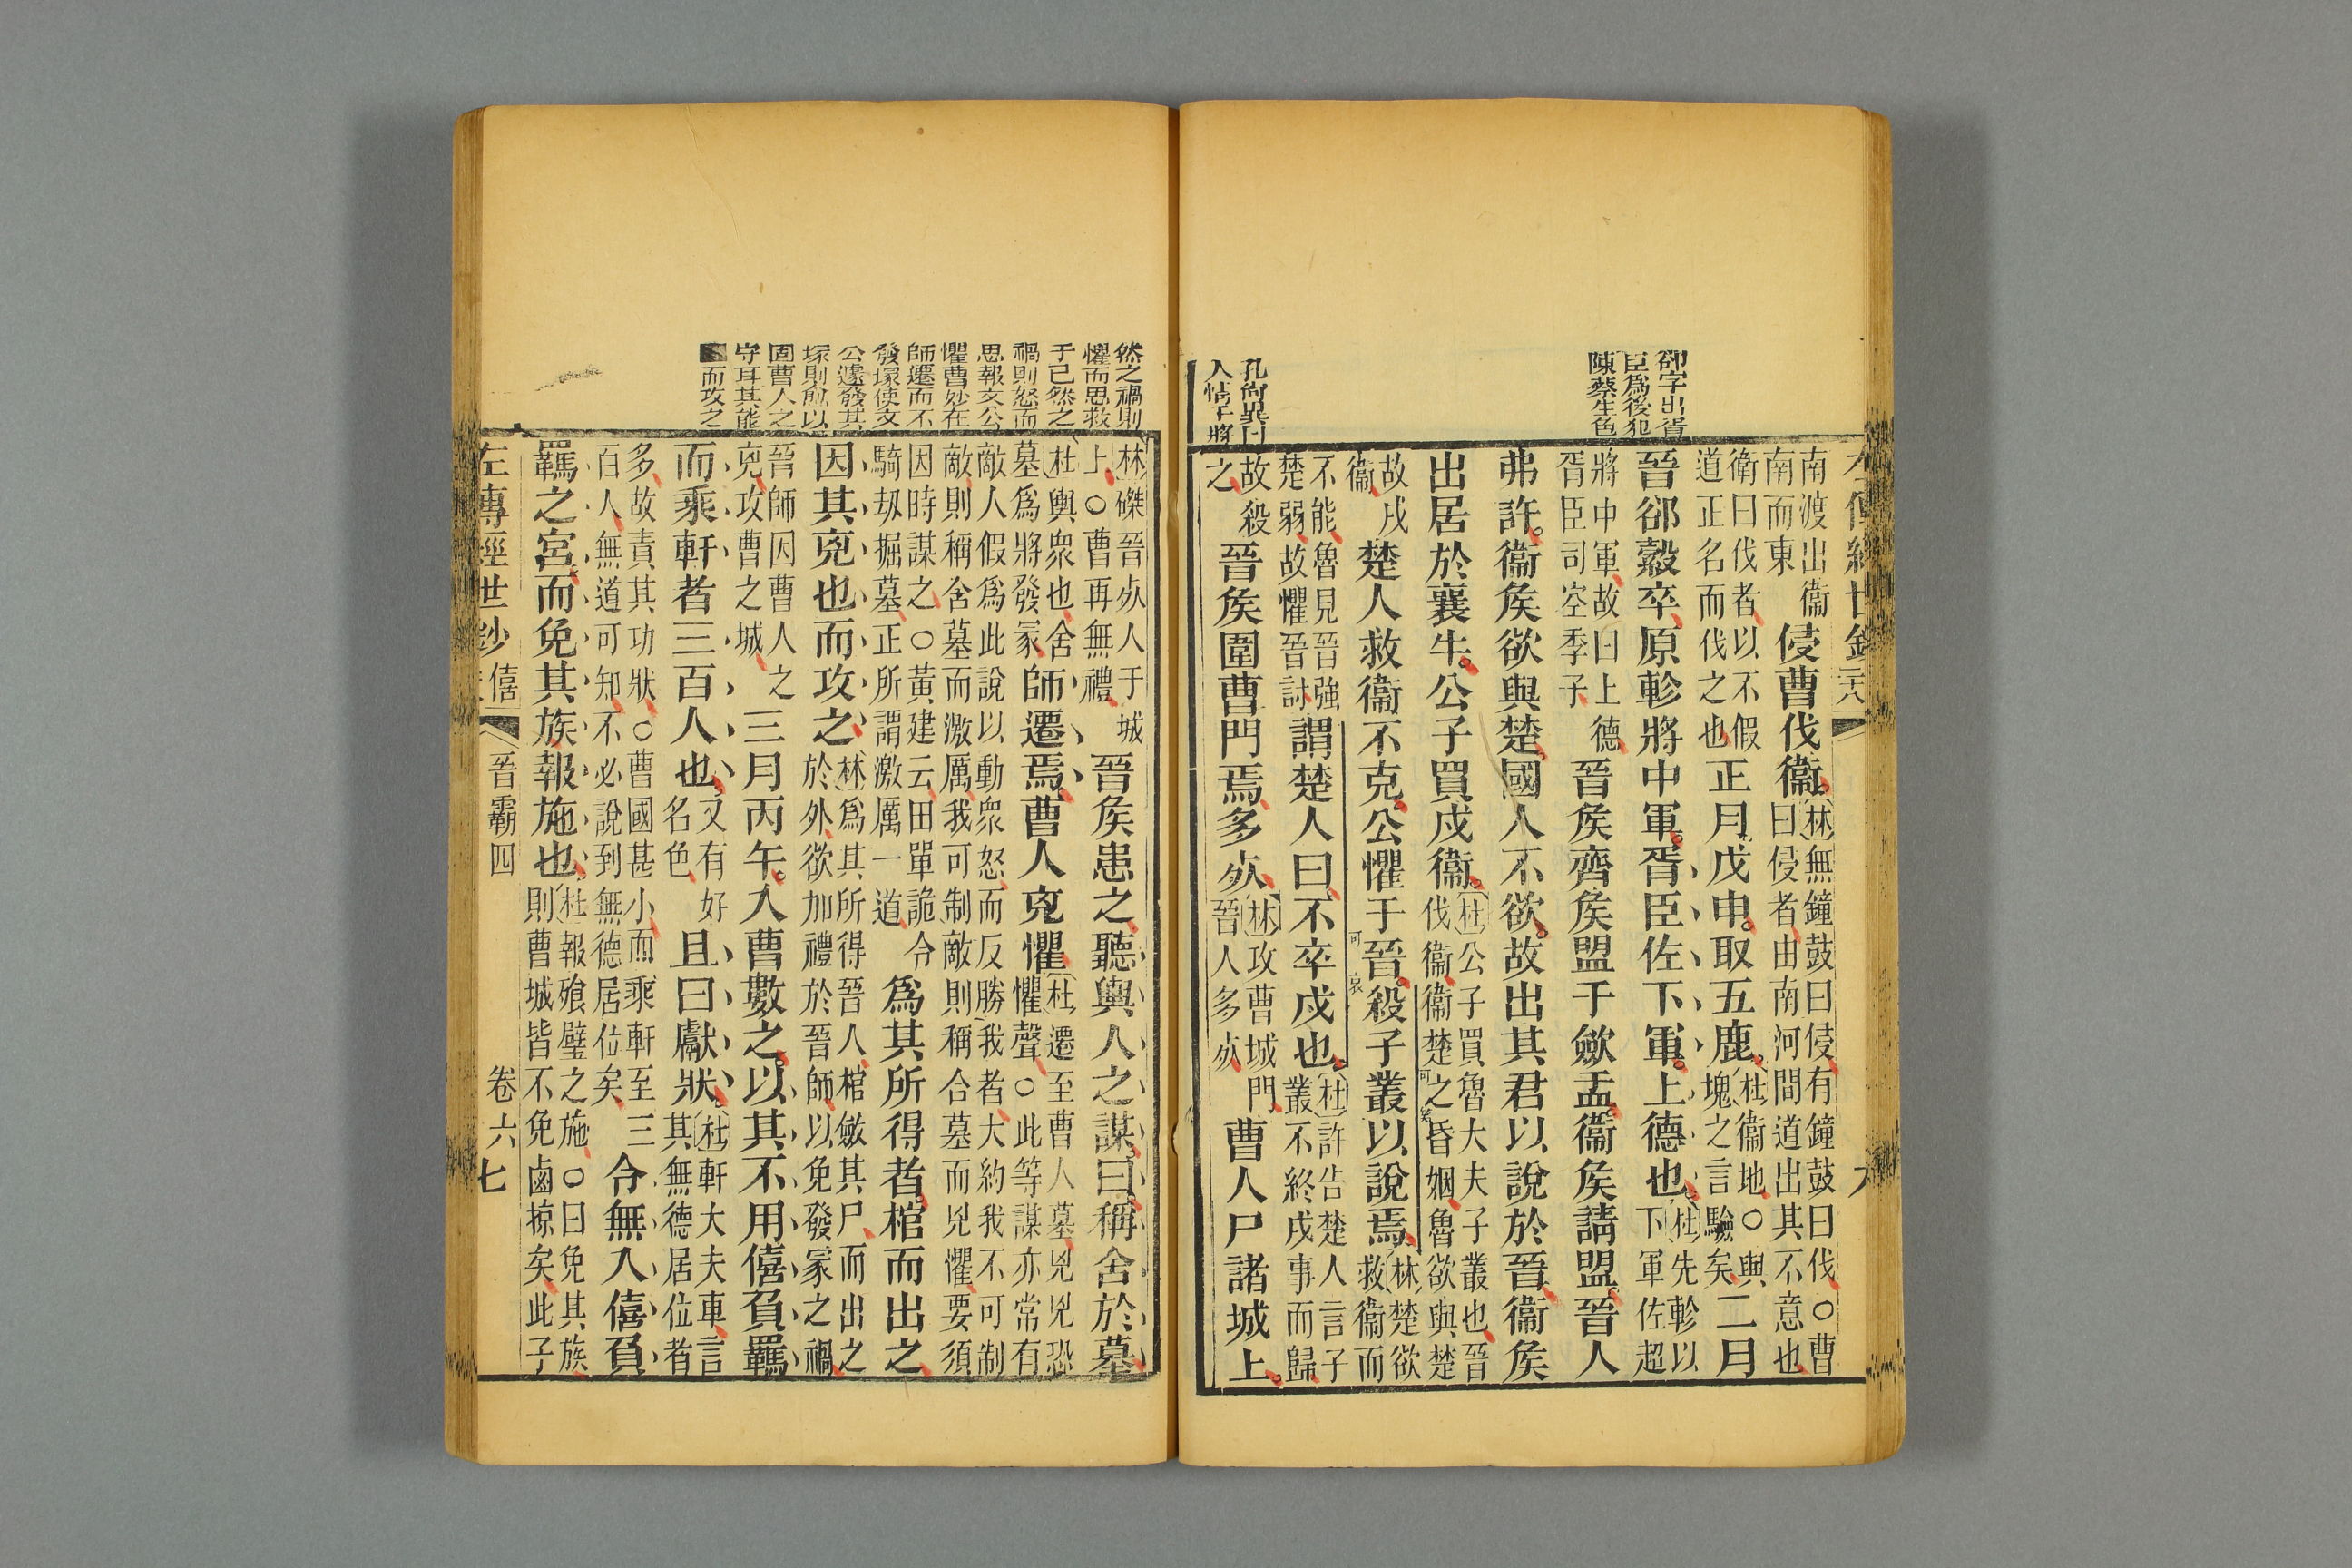 郤字出胥
臣爲後犯
陳蔡生色
孔尙異曰
人情于將
南渡出衞
南而東
侵曹伐衞
林無鐘鼓曰侵有鐘鼓曰伐○曹
曰侵者由南河間道出其不意也
衛曰伐者以不假
道正名而伐之也
正月戊申取五鹿
杜衞地○與
塊之言驗矣
二月
晉郤縠卒原軫將中軍胥臣佐下軍上德也
杜先軫以
下軍佐超
將中軍故曰上德
胥臣司空季子
晉矦齊矦盟于歛盂衞矦請盟晉人
弗許衞矦欲與楚國人不欲故出其君以說於晉衞矦
出居於襄牛公子買戍衞
杜公子買魯大夫子叢也晉
伐衞衞楚之昏姻魯欲與楚
可笑
故戍
衞
楚人救衞不克公懼于晉殺子叢以說焉
可哀
林楚欲
救衞而
不能魯見晉強
楚弱故懼晉討
謂楚人曰不卒戍也
杜許告楚人言子
叢不終戍事而歸
故殺
之
晉矦圍曹門焉多㱙
林攻曹城門
晉人多㱙
曹人尸諸城上
然之禍則
懼而思救
于已然之
禍則怒而
思報文公
懼曹妙在
師遷而不
發塚使文
公遽發其
塚則愈以
固曹人之
守耳其能
而攻之
林磔晉㱙人于城
上○曹再無禮
晉矦患之聽輿人之謀曰稱舍於墓
杜輿衆也舍
墓爲將發冢
師遷焉曹人兇懼
杜遷至曹人墓兇兇恐
懼聲○此等謀亦常有
敵人假爲此說以動衆怒而反勝我者大約我不可制
敵則稱舍墓而激厲我可制敵則稱合墓而兇懼要須
因時謀之○黃建云田單詭令
騎刼掘墓正所謂激厲一道
爲其所得者棺而出之
因其兇也而攻之
林爲其所得晉人棺斂其尸而出之
於外欲加禮於晉師以免發冢之禍
晉師因曹人之
兇攻曹之城
三月丙午入曹數之以其不用僖負羈
而乘軒者三百人也
又有好
名色
且曰獻狀
杜軒大夫車言
其無德居位者
多故責其功狀○曹國甚小而乘軒至三
百人無道可知不必說到無德居位矣
令無入僖負
羈之宮而免其族報施也
杜報飧璧之施○曰免其族
則曹城皆不免鹵掠矣此子
左傳經世鈔 僖 晉霸四 卷六 七